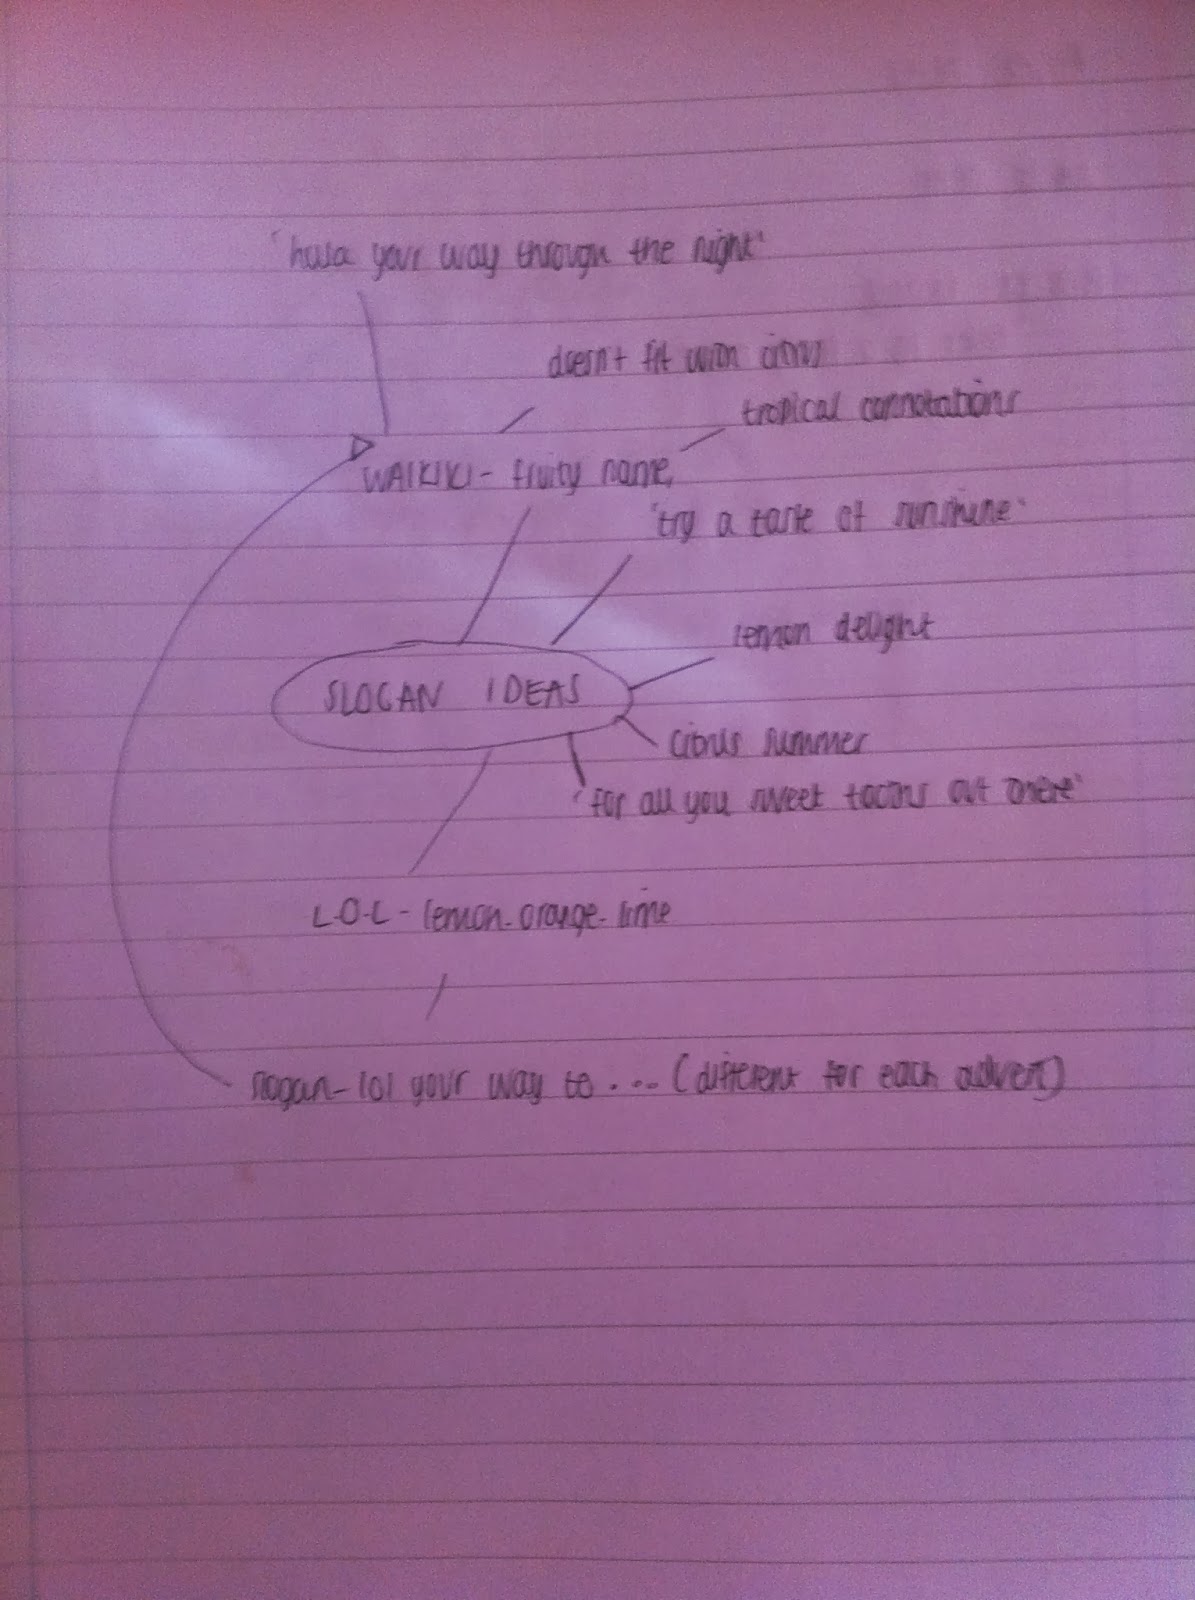 'hula your way through the night'
doesn't fit with citrus
tropical connotations
WAIKIKI - fruity name,
'try a taste of sunshine'
lemon delight
SLOGAN IDEAS
citrus summer
'for all you sweet out there'
L-O-L - lemon-orange-lime
slogan - lol your way to .... (different for each advert)